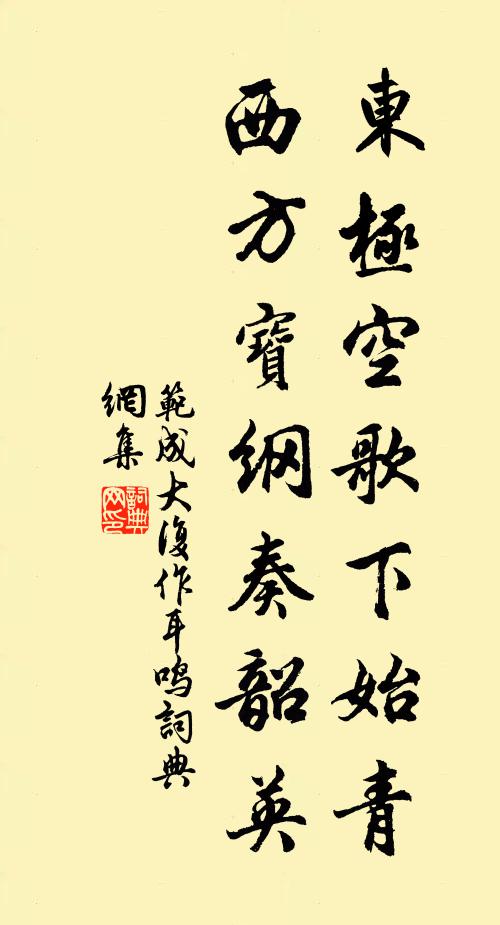 東極空歌下始青
西方寶綱奏韶英
範成大復作耳鳴詞典
網集
詞典网印